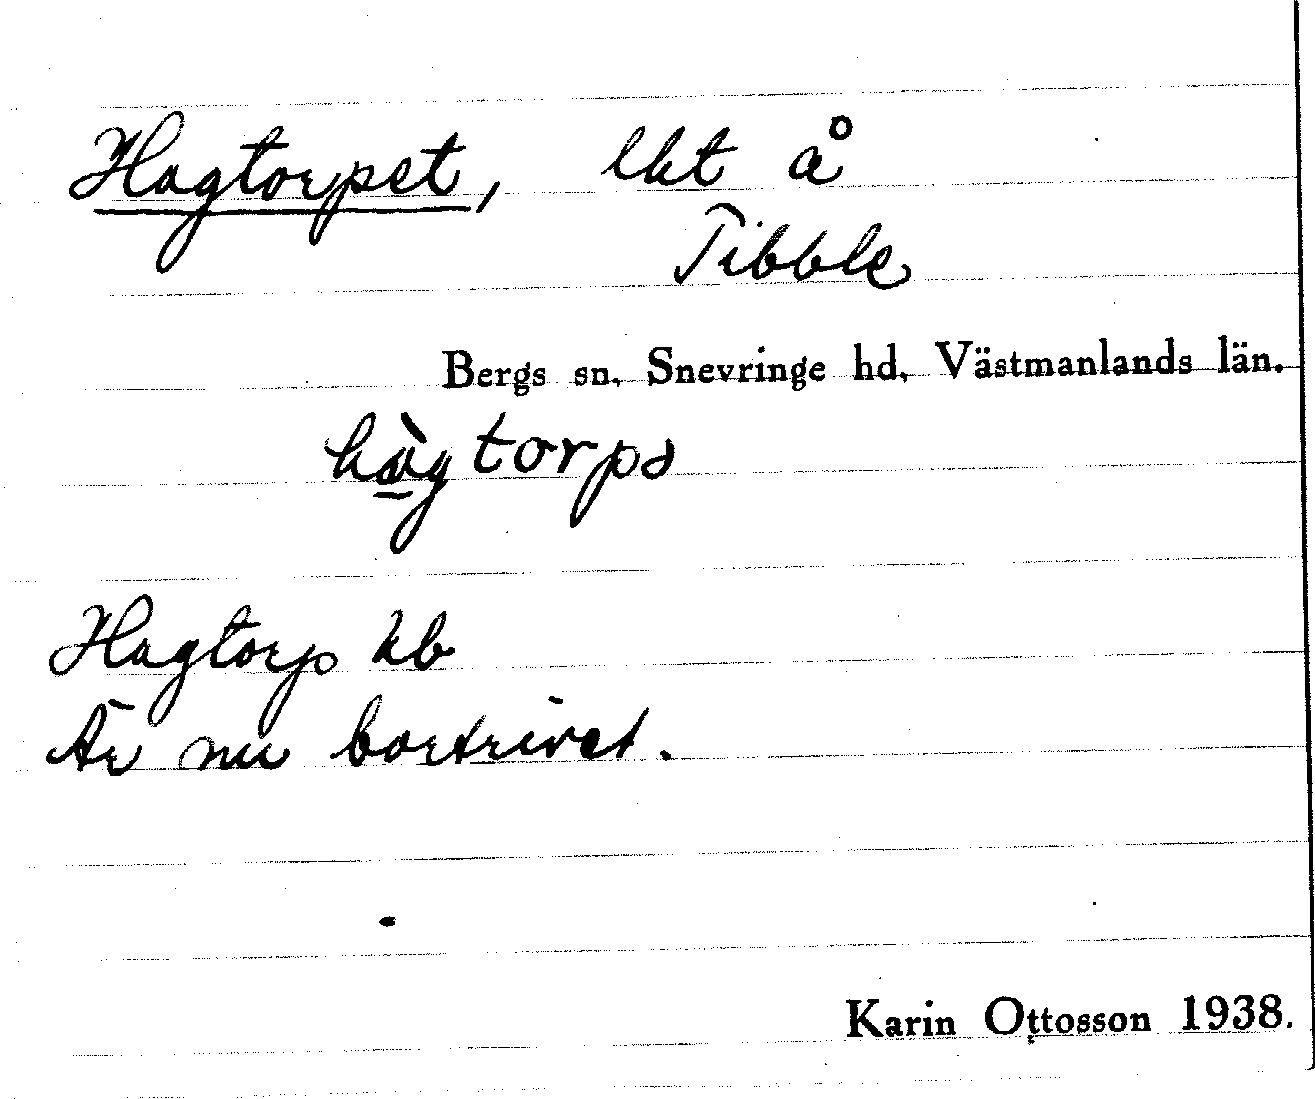 Hagtorpet, lht å
Tibble
Bergs sn, Snevringe hd, Västmanlands län.
hàg torpə
Hagtorp kb
Är nu bortrivet.
Karin Ottosson 1938.